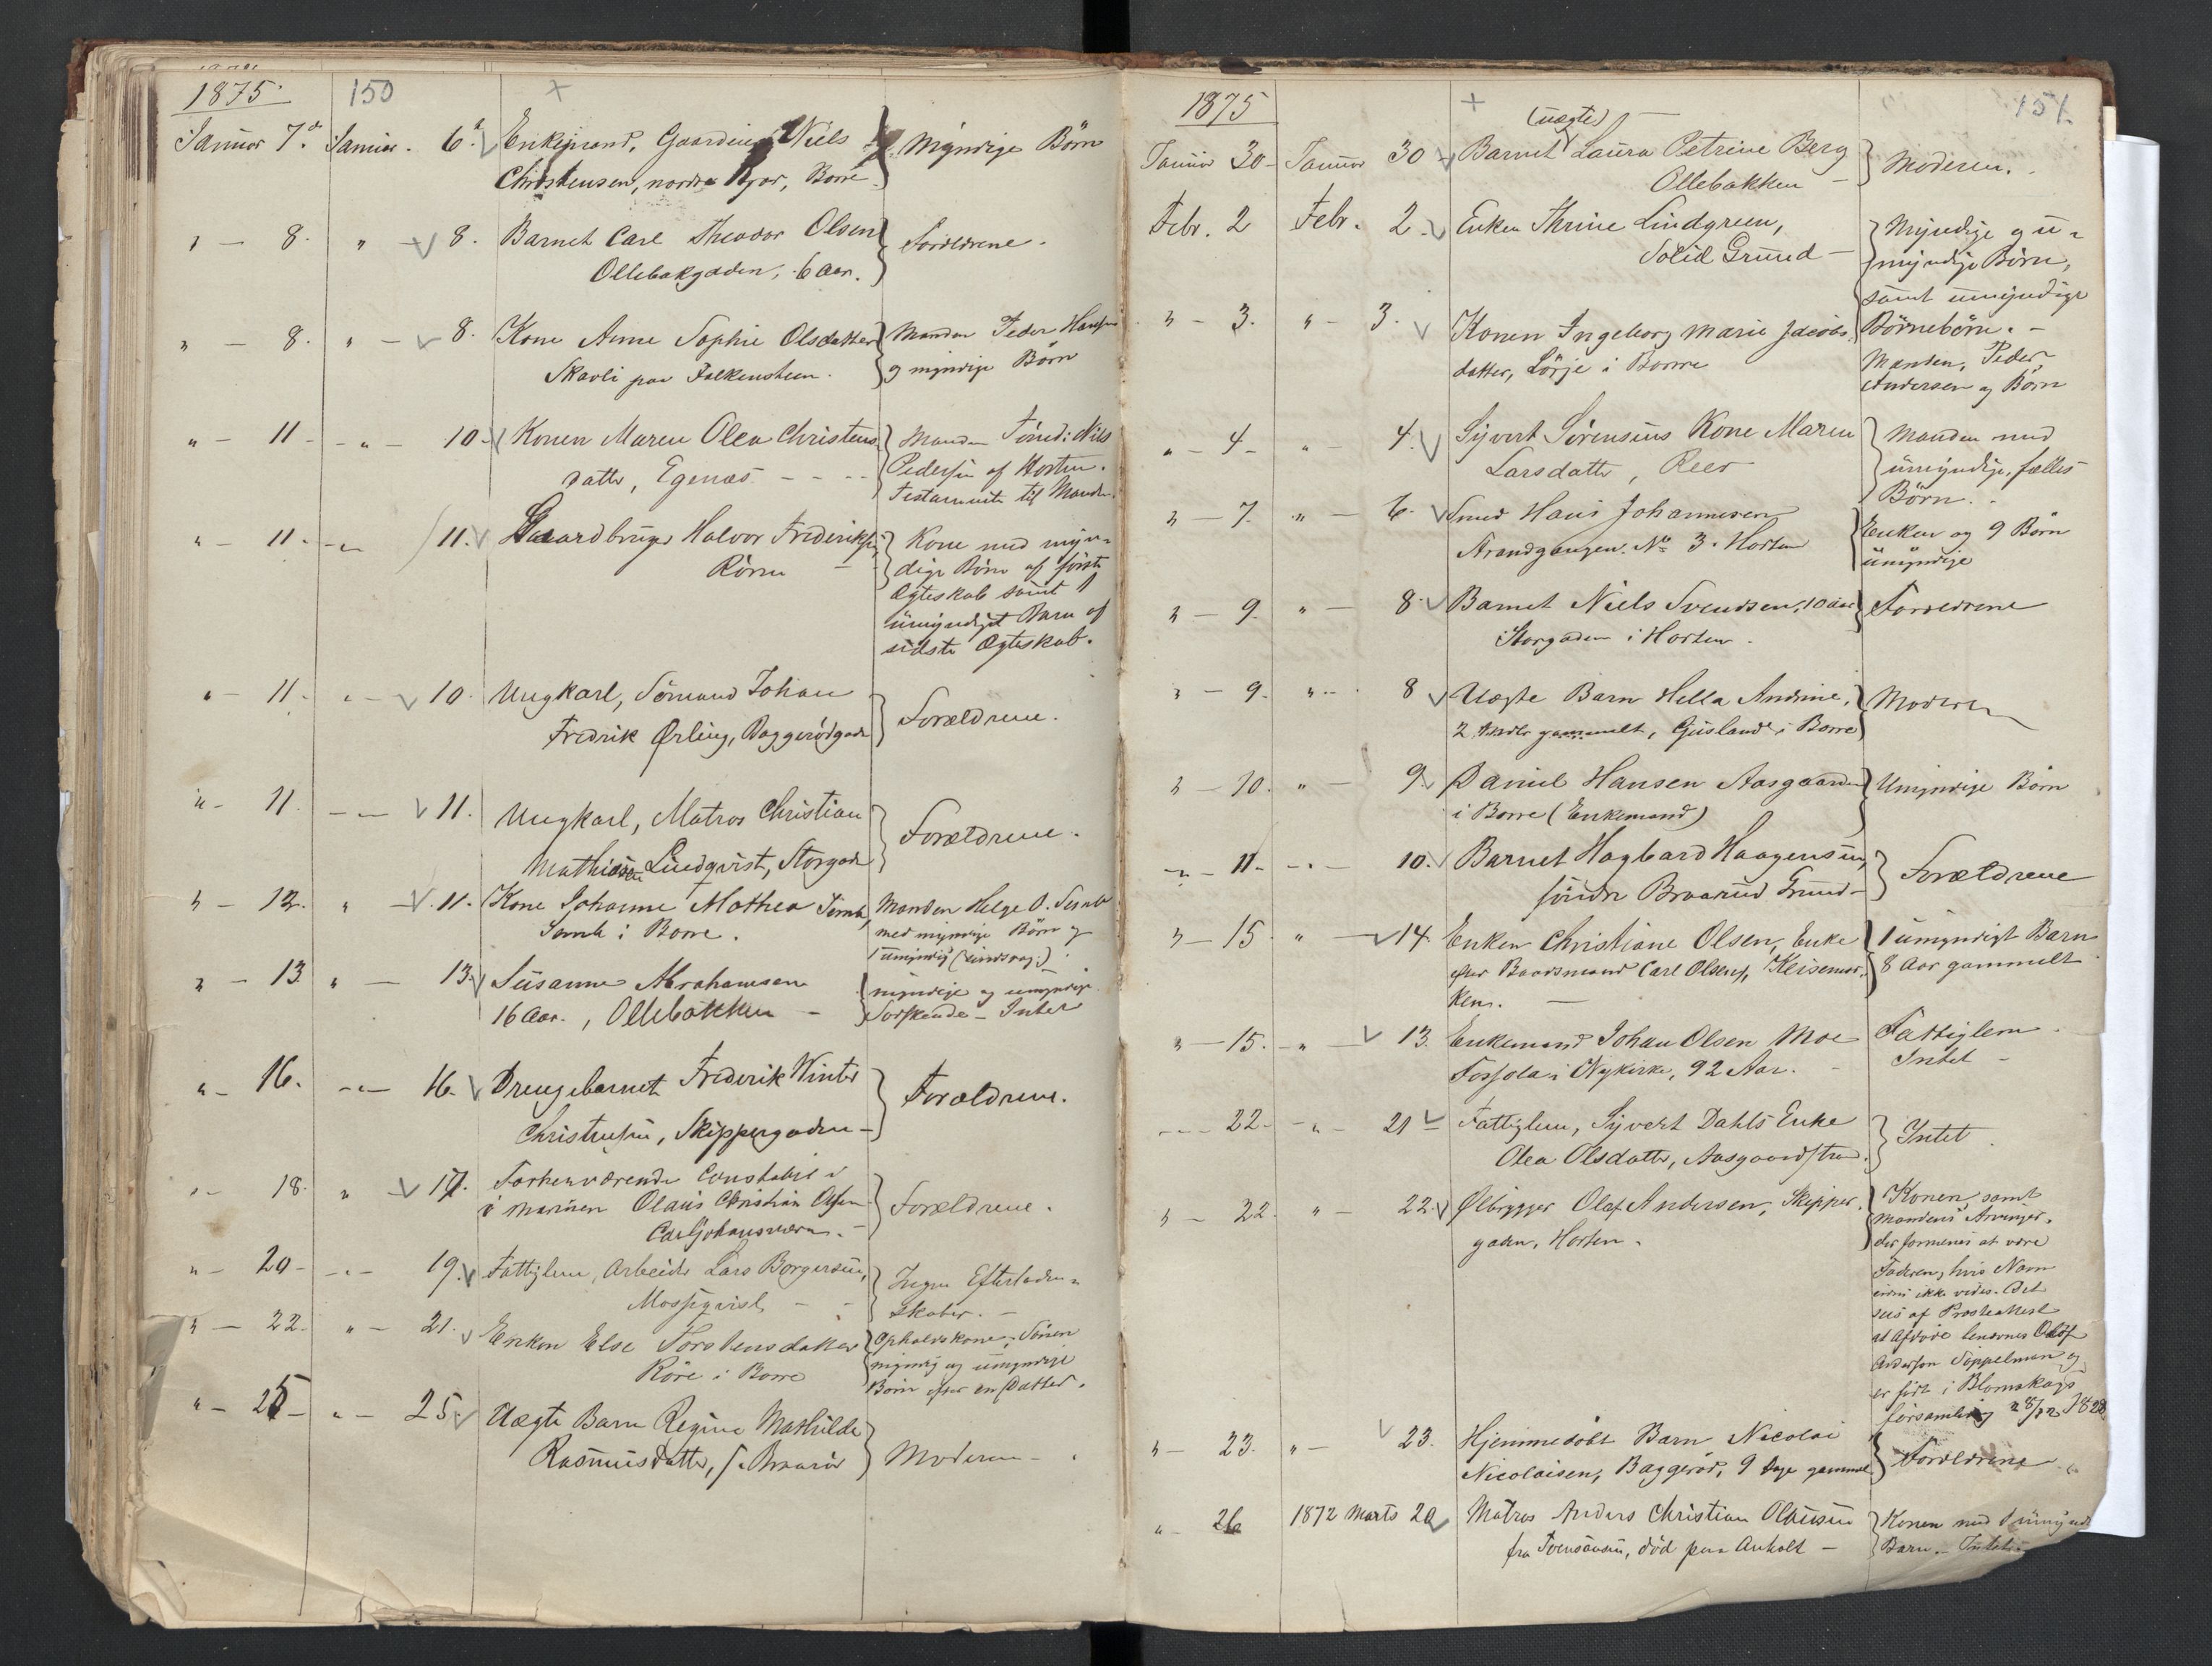 1875 150 +
Januar 7de Januar 6te Enkemand, Gaardbruger Niels Myndige Børn
Christensen, nordre Borre
" — 8. " — 8. Barnet Carl Theodor Olsen Forældrene.
Ollebakgaden, 6 Aar.
" — 8. " — 8. Kone Anne Sophie Olsdatter Manden Peder Hansen
Skavli paa Falkensteen. og myndige Børn
" — 11 — " — 10. Konen Maren Olea Christens Manden Tömdr: Niels
datter, Egenæs. Pedersen af Horten.
Testamente til Manden.
" — 11. — " — 11. Gaardbruger Halvor Frederiksen Kone med myn-
Rörne dige Börn af förste
Ægteskab samt 1
umyndigt Barn af
sidste Ægteskab.
" — 11. " — 10. Ungkarl, Sömand Johan
Fredrik Ørling, Baggerødgade Forældrene.
" — 11. — " — 11. Ungkarl, Matros Christian
Mathisen Lindqvist, Storgade Forældrene.
" — 12. " — 11. Kone Johanne Mathea Manden Helge O. Semb
Semb i Borre. med myndige Børn og
1 umyndig (sindssvag.)
" — 13 " — 13. Susanne Abrahamsen myndige og umyndige
16 Aar., Ollebakken — Sødskende — Intet
" — 16. — " — 16. Drengebarnet Frederik Winter Forældrene.
Christensen, Skippergaden —
" — 18. " — 17. Forhenværende Constabel
i Marinen Olaus Christian Olsen Forældrene.
Carljohansværn. —
" — 20 — — " — 19. Fattiglem, Arbeider Lars Borgersen, Ingen Efterladen-
Mossiqvist, — skaber. —
" — 22. " — 21. Enken Else Torstensdatter Opholdskone. Sönen
Röre i Borre myndig og umyndige
Børn efter en Datter.
" — 25 — " — 25. Uægte Barn Regine Mathilde
Rasmusdatter, S. Braarud Moderen —
1875 + 151.
(uægte)
Januar 30 — Januar 30 Barnet Laura Petrine Berg Moderen.
Ollebakken —
Febr. 2 Febr. 2. Enken Thrine Lindgreen, Myndige og u-
Solid Grund — myndige Børn,
samt umyndige
" — 3. " — 3. Konen Ingeborg Marie Jacobs- Börnebörn. —
datter, Lörje i Borre Manden, Peder
Andersen og Børn
" — 4 — " 4. Syvert Sørensens Kone Maren Manden med
Larsdatter, Reer umyndige, fælles
Børn.
" — 7. " — 6. Smed Hans Johannesen Enken og 9 Børn
Strandgangen. No 3. Horten umyndige
" — 9. " — 8. Barnet Niels Svendsen, 10 Aar Forældrene
Storgaden i Horten.
" — 9. " — 8 Uægte Barn Hella Andrine, Moderen
2 gammelt, Gusland i Borre
" — 10. " — 9. Daniel Hansen Aasgaarden Umyndige Børn
i Borre (Enkemand)
" — 11. — " — 10. Barnet Hagbard Haagensen, Forældrene
söndre Braarud Grund —
" — 15 " — 14. Enken Christiane Olsen, Enke 1 umyndigt Barn
efter Baadsmand Carl Olsen, Keisemar- 8 Aar gammelt
ken. —
" — 15. — " — 13. Enkemand Johan Olsen Moe Fattiglem.
Fossola i Nykirke, 92 Aar. — Intet —
— " — 22. — " — 21 Fattiglem, Syvert Dahls Enke Intet.
Olea Olsdatter, Aasgaardstrand.
" — 22. " — 22. Ølbrygger Olaf Andersen, Skipper- Konen samt
gaden, Horten. Mandens Arvinger,
der formenes at være
Faderen, hvis Navn
endnu ikke vides. Det
sees af Presteattest
at Afdøde benævnes Olof
Anderson Sippelman og
er født i Blomskogs
forsamling 28/12 1828
" — 23. " — 23. Hjemmedøbt Barn Nicolai Forældrene
Nicolaisen, Baggeröd, 9 Dage gammel
" — 26 1872 Marts 20 Matros Anders Christian Olausen Konen med 1 umyndigt
fra Svensausen, död paa Anholt — Barn. — Intet. —